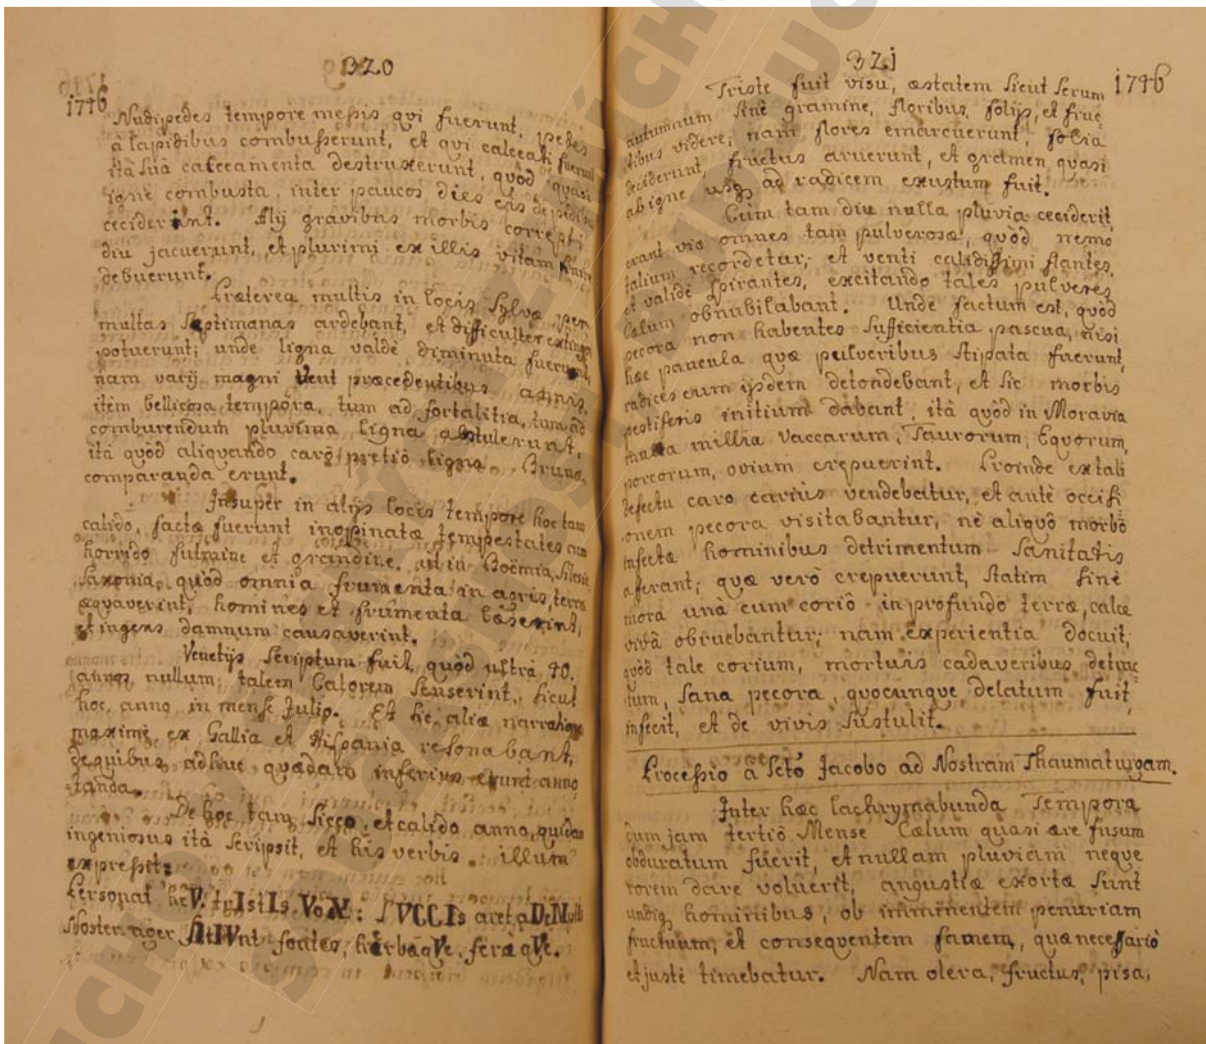 320
1746
Nudipedes tempore messis qui fuerunt, pedes
à lapidibus combusserunt, et qui calceati fuerunt
ità suà calceamenta destruxerunt, quòd quasi
igne combusta, inter paucos dies eis de pedibus
ceciderunt. Alij gravibus morbis correpti
diu jacuerunt, et plurimi ex illis vitam finire
debuerunt.
Præterea multis in locis Sylvæ per
multas Septimanas ardebant, et difficulter extingvi
potuerunt; unde ligna valdè diminuta fuerunt,
nam varij magni venti præcedentibus annis,
item bellicosa tempora, tum ad fortalitia, tum ad
comburendum plurima ligna abstulerunt,
ità quòd aliquando carô pretiô ligna Brunæ
comparanda erunt.
Insuper in alijs locis tempore hoc tam
calido, factæ fuerunt inopinatæ tempestates cum
horrido fulmine et grandine, ut in Boëmia, Silesia
Saxonia, quòd omnia frumenta in agris, terræ
æquaverint, homines et frumenta læserint,
et ingens damnum causaverint.
Venetijs Scriptum fuit, quòd ultrà 40.
annos nullum talem Calorem Senserint, sicut
hoc anno in mense Julio. Et sic aliæ narrationes
maximè ex Gallia et Hispania resonabant,
de quibus adhuc quædam inferius erunt anno
tanda.
De hoc tam Sicco, et calido anno, quidam
ingeniosus ità Scripsit, et his verbis illum
expressit:
Personat heV. trIstIs VoX: SVCCIs aret aDeMptis
Noster ager SItIVnt fontes, hêrbaqVe, feræqVe.
321
1746
Triste fuit visu, æstatem sicut serum
autumnum sinè gramine, floribus, folijs, et fruc
tibus videre; nam flores emarcuerunt, folia
deciderunt, fructus aruerunt, et gramen quasi
ab igne usq ad radicem exustum fuit.
Cùm tam diu nulla pluvia ceciderit,
erant viæ omnes tam pulverosæ, quòd nemo
talium recordetur; et venti calidissimi flantes,
et validè spirantes, excitando tales pulveres
Cælum obnubilabant. Unde factum est, quòd
pecora non habentes Sufficientia pascua, nisi
hæc paucula quæ pulveribus stipata fuerunt,
radices cum ijsdem detondebant, et sic morbis
pestiferis initium dabant, ità quòd in Moravia
multa millia Vaccarum, Taurorum, Equorum,
porcorum, ovium crepuerint. Proinde ex tali
defectu caro cariùs vendebatur, et antè occisi
onem pecora visitabantur, nè aliquô morbô
infecta hominibus detrimentum Sanitatis
afferant; quæ verò crepuerunt, statim sinè
mora unà cum coriô in profundo terræ, calce
vivâ obruebantur; nam experientia docuit,
quòd tale corium, mortuis cadaveribus detrac
tum, Sana pecora, quocunque delatum fuit,
infecit, et de vivis Sustulit.
Processio à Sctô Jacobo ad Nostram Thaumaturgam.
Inter hæc lachrymabunda Tempora
cum jam tertiô Mense Cælum quasi ære fusum
obduratum fuerit, et nullam pluviam neque
rorem dare voluerit, angustiæ exortæ sunt
undiq hominibus, ob imminentem penuriam
fructuum, et consequentem famem, quæ necessariò
et justè timebatur. Nam olera, fructus, pisa,